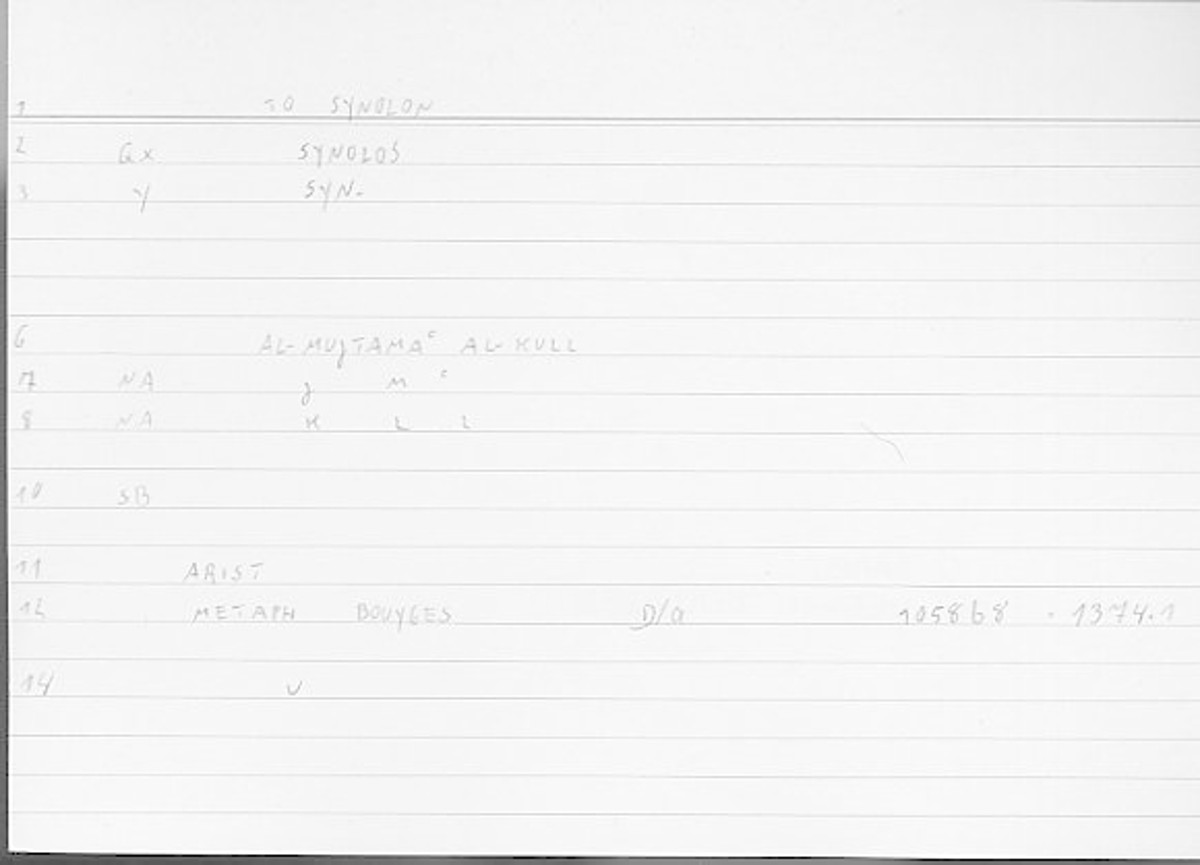 1 TO SYNOLON
2 Gx SYNOLOS
3 y SYN-
6 AL-MUJTAMAᶜ AL-KULL
7 NA J M ᶜ
8 NA K L L
10 SB
11 ARIST
12 METAPH BOUYGES D/a 1058b8 . 1374.1
14 v